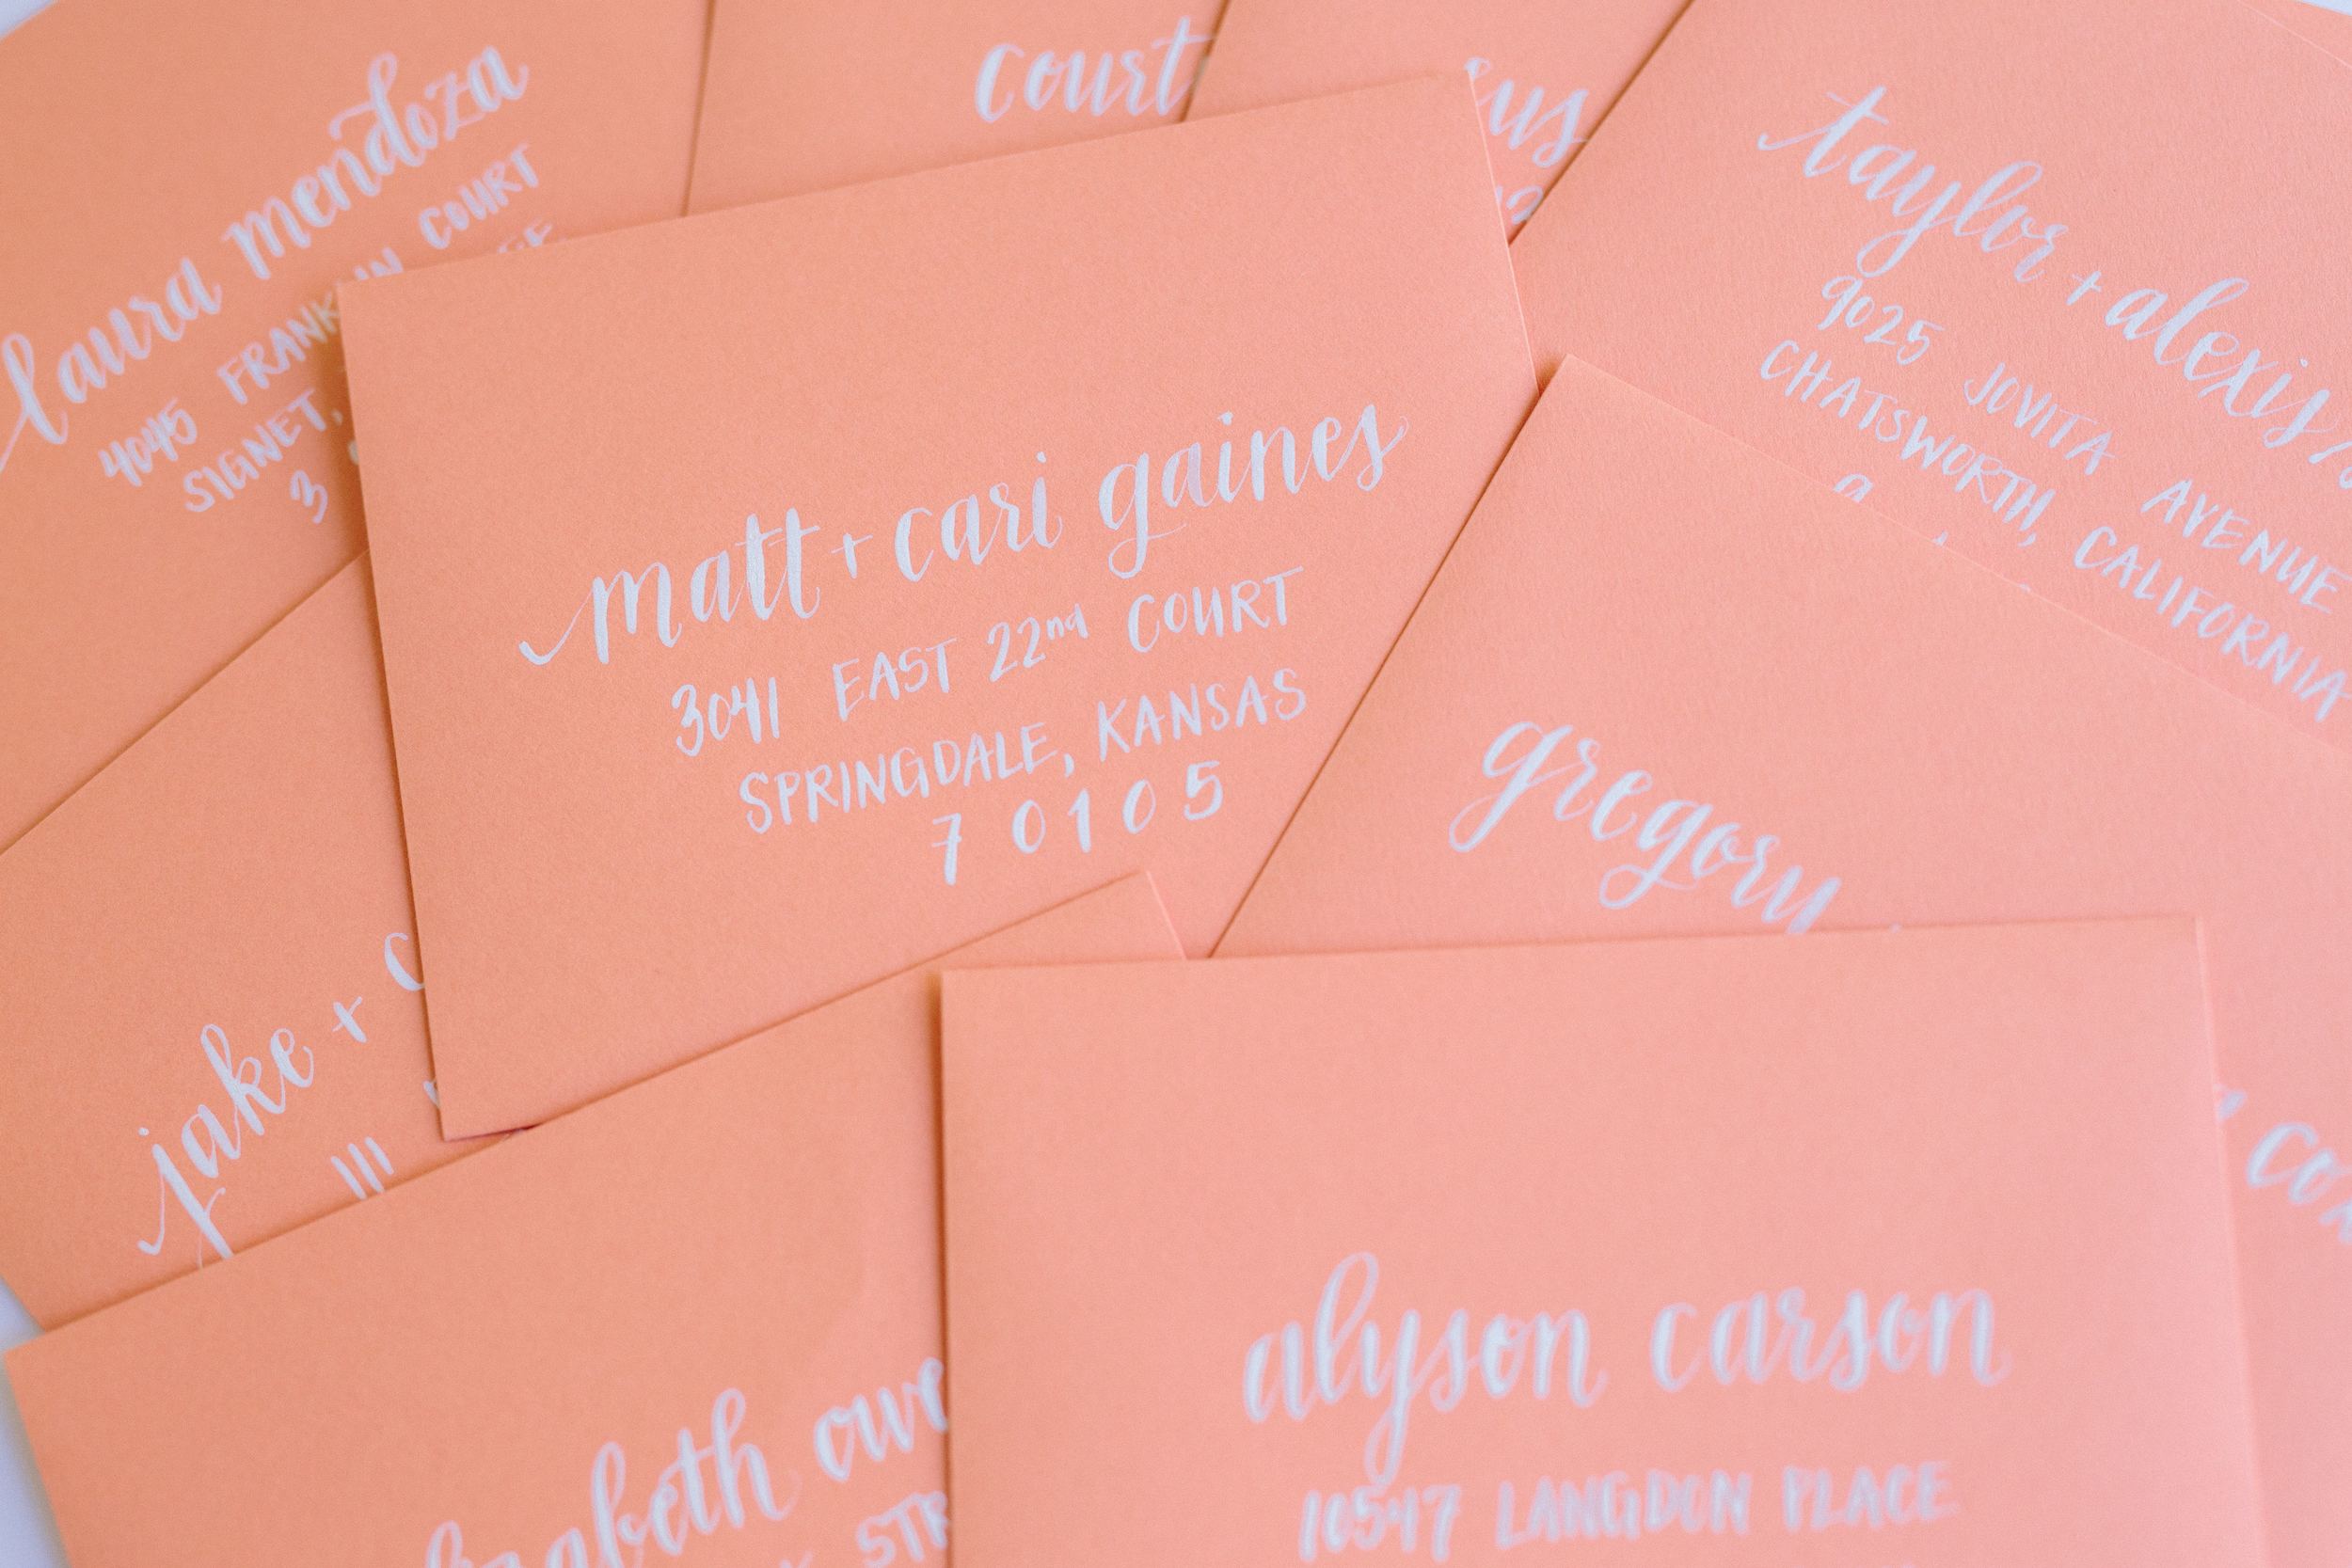 laura mendoza
4045 FRANKLIN COURT
SIGNET,
3
court
taylor + alexis
9025 JOVITA AVENUE
CHATSWORTH, CALIFORNIA
matt + cari gaines
3041 EAST 22nd COURT
SPRINGDALE, KANSAS
70105
gregory
jake +
alyson carson
10547 LANGDON PLACE